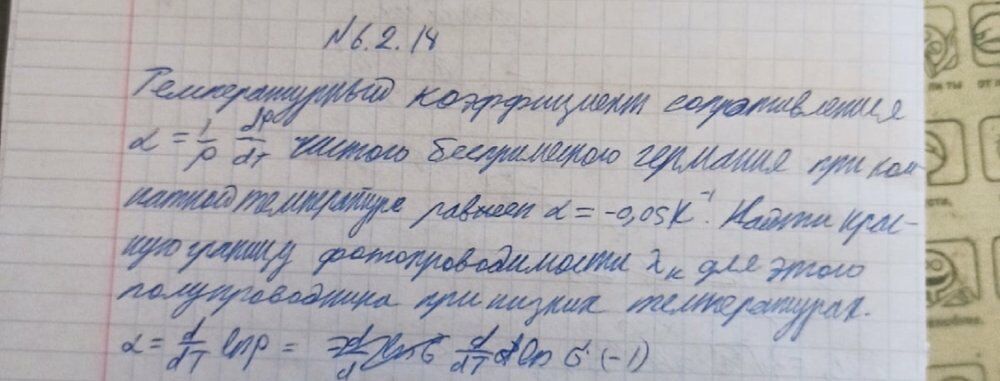 N 6.2.14
Температурный коэффициент сопротивления
α = 1/ρ dρ/dT чистого беспримесного германия при ком
натной температуре равен α = -0,05 K⁻¹. Найти крас-
ную границу фотопроводимости λк для этого
полупроводника при низких температурах.
α = d/dT lnρ = d/dT ln σ (-1)